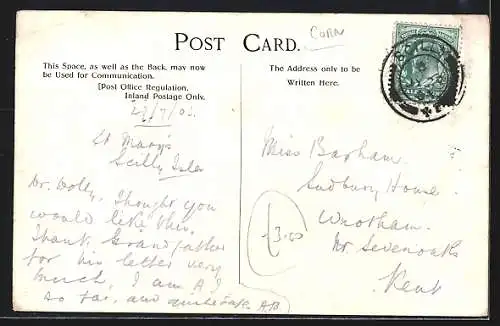 CORN
POST CARD.
This Space, as well as the Back, may now
be Used for Communication.
[Post Office Regulation.
Inland Postage Only.
The Address only to be
Written Here.
St Mary's
Scilly Isles
Dr. Dolly, Thought you
would like this.
Thank Grandfather
for his letter very
much, I am A1
so far, and AB
Miss Barham.
Sudbury House.
Wrotham.
Nr Sevenoaks
Kent
£3.00